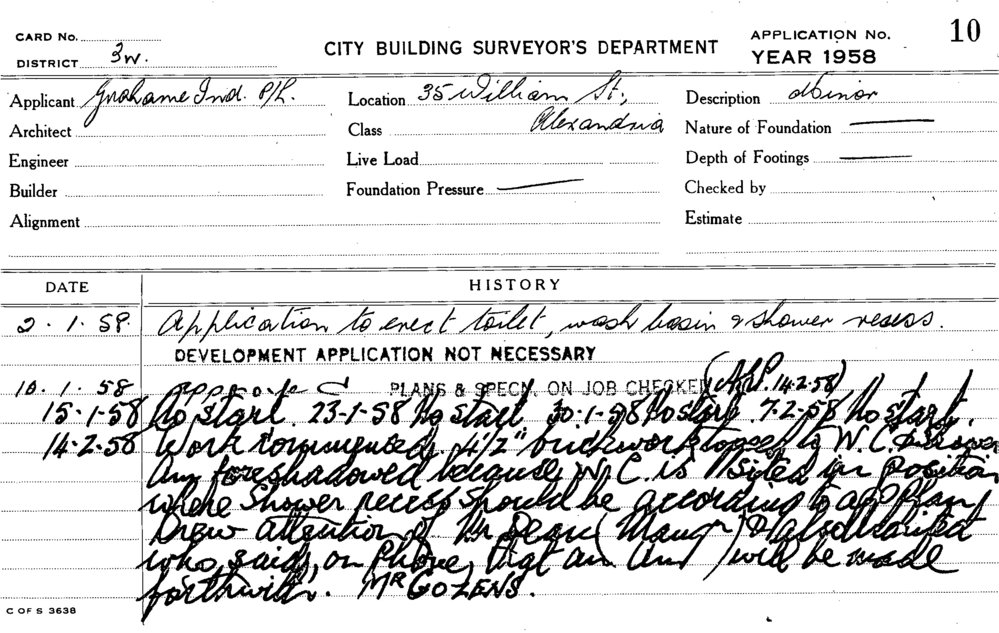 CARD No.
DISTRICT 3W.
CITY BUILDING SURVEYOR'S DEPARTMENT
APPLICATION No. 10
YEAR 1958
Applicant Grahame Ind. P/L.
Location 35 William St,
Description Minor
Architect
Class Alexandria
Nature of Foundation —
Engineer
Live Load
Depth of Footings —
Builder
Foundation Pressure —
Checked by
Alignment
Estimate
DATE HISTORY
2.1.58. Application to erect toilet, wash basin & shower resess.
DEVELOPMENT APPLICATION NOT NECESSARY
10.1.58 approved PLANS & SPECN. ON JOB CHECKED 14-2-58)
15-1-58 No start. 23-1-58 No start. 30-1-58 No start. 7-2-58 No start.
14-2-58 Work commenced. 4½" brickwork to W.C. & shower
Am foreshadowed because W.C. is sited in position
where shower recess should be according to app plan
Drew attention of Mr Dean (Manag) & also
who said, on phone, that an Am will be made
forthwith. MR GOZENS.
C OF S 3638